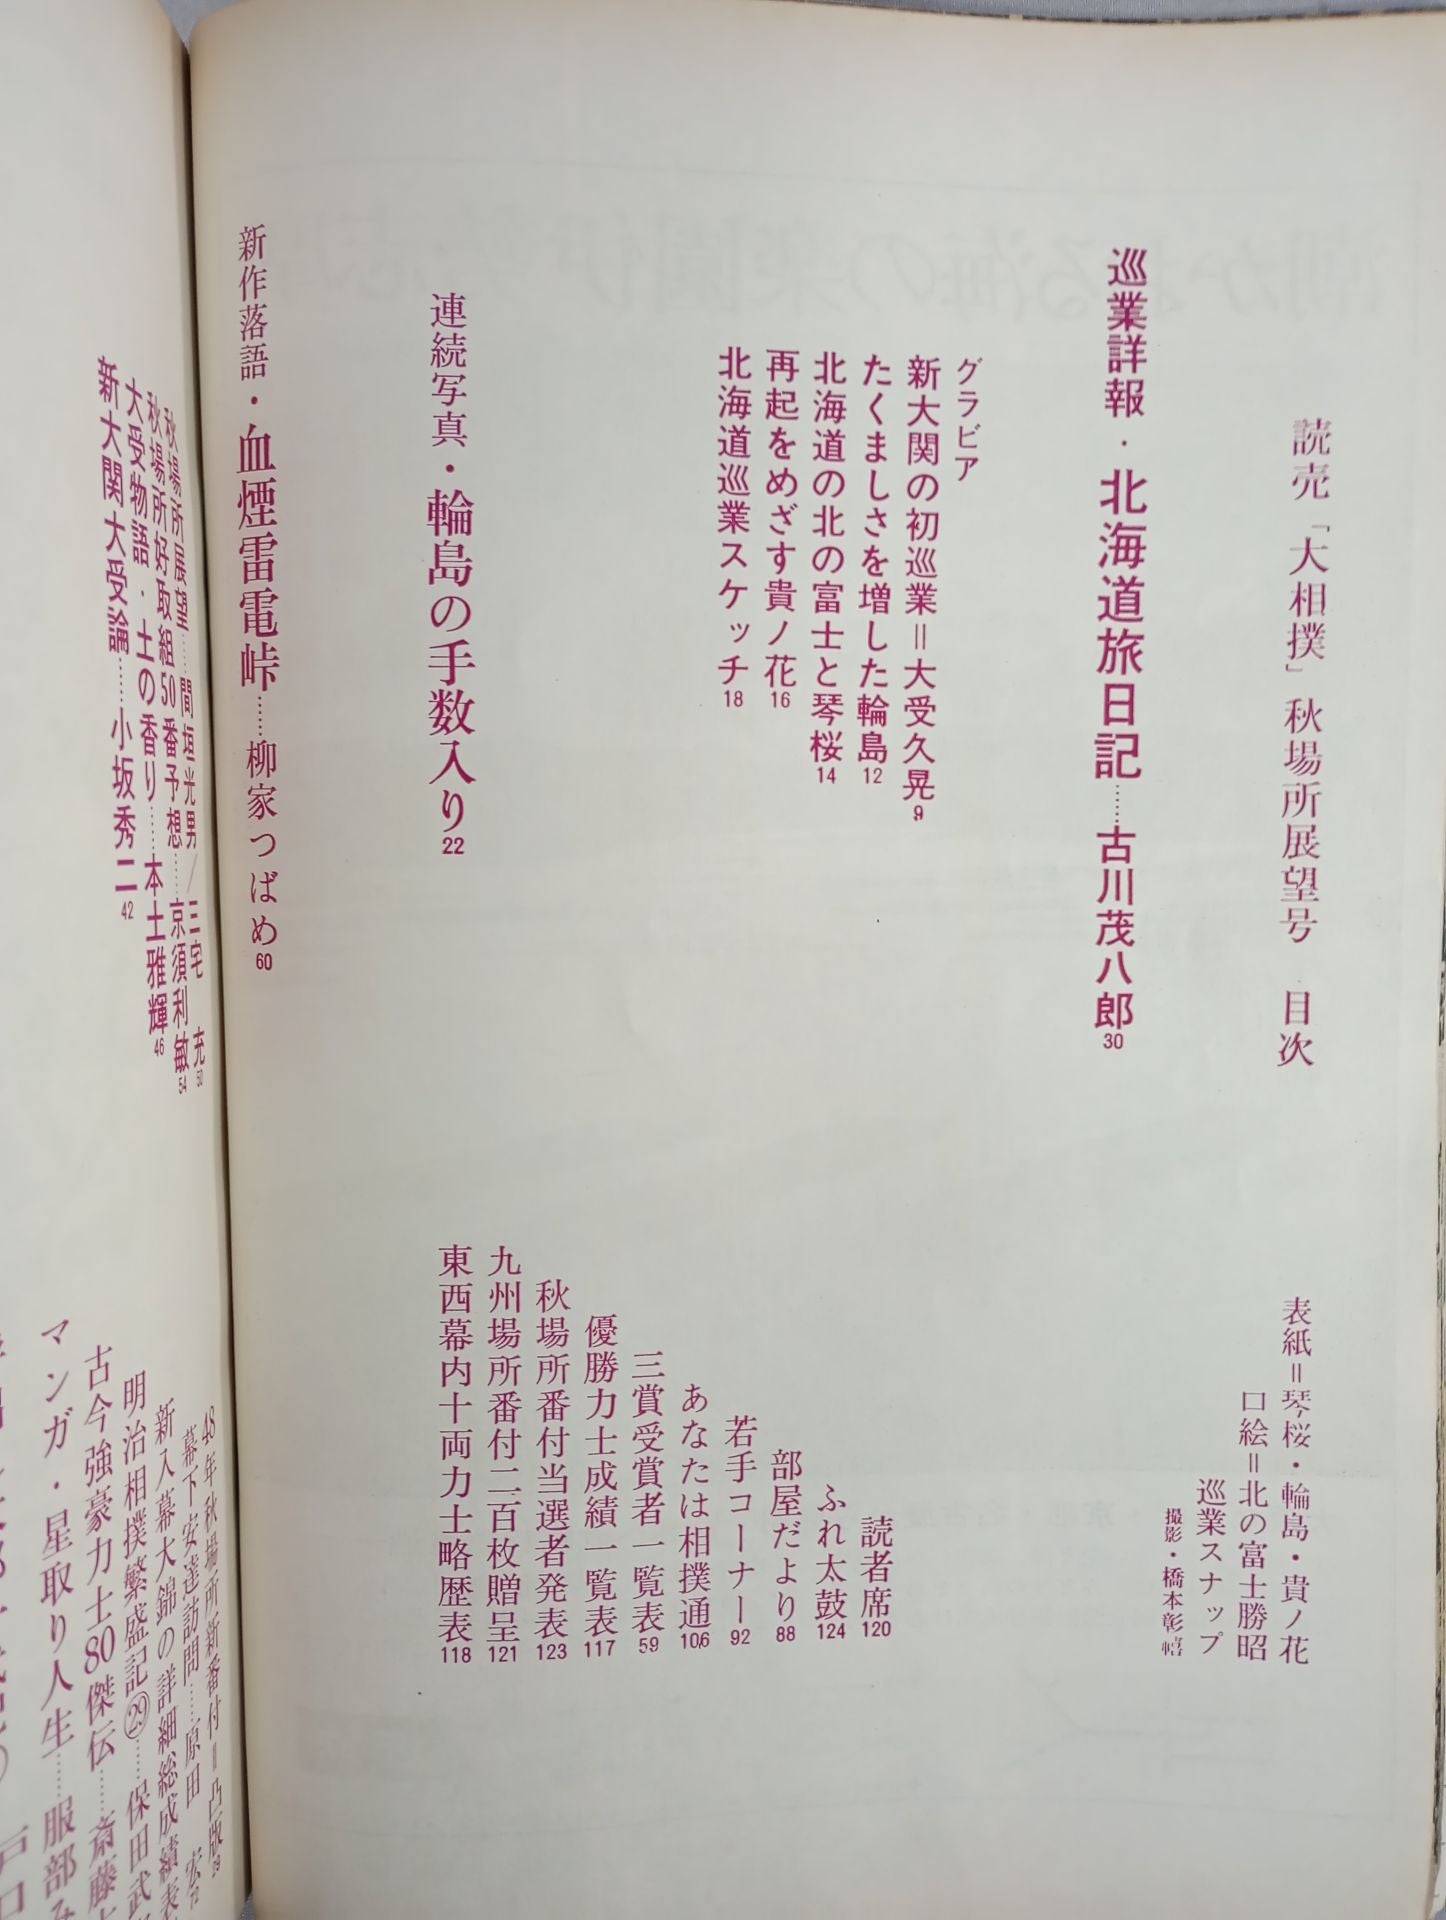 読売「大相撲」秋場所展望号　目次
表紙＝琴桜・輪島・貴ノ花
口絵＝北の富士勝昭
巡業スナップ
撮影・橋本彰
巡業詳報・北海道旅日記……古川茂八郎30
グラビア
新大関の初巡業＝大受久晃9
たくましさを増した輪島12
北海道の北の富士と琴桜14
再起をめざす貴ノ花16
北海道巡業スケッチ18
読者席120
ふれ太鼓124
部屋だより88
若手コーナー92
あなたは相撲通106
三賞受賞者一覧表59
優勝力士成績一覧表117
秋場所番付当選者発表123
九州場所番付二百枚贈呈121
東西幕内十両力士略歴表118
連続写真・輪島の手数入り22
新作落語・血煙雷電峠……柳家つばめ60
秋場所展望……間垣光男／三宅　充50
秋場所好取組50番予想……京須利敏54
大受物語・土の香り……本土雅輝46
新大関大受論……小坂秀二42
48年秋場所新番付＝凸版
幕下安達訪問……原田　宏72
新入幕大錦の詳細総成績表
明治相撲繁盛記㉙……保田武
古今強豪力士80傑伝……斎藤
マンガ・星取り人生……服部み
戸口